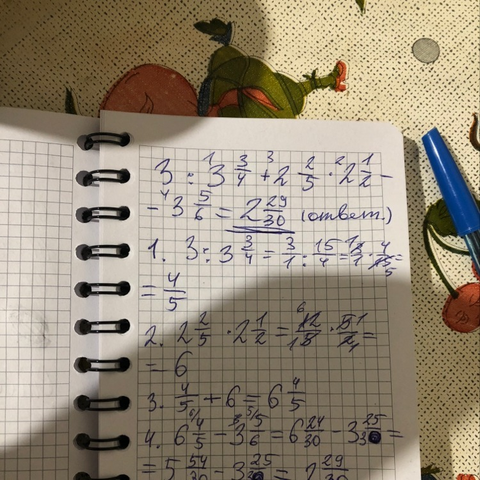 3 : 3 3/4 + 2 2/5 · 2 1/2 -
- 3 5/6 = 2 29/30 (ответ)
1. 3 : 3 3/4 = 3/1 : 15/4 = 3/1 · 4/15 =
= 4/5
2. 2 2/5 · 2 1/2 = 12/5 · 5/2 =
= 6
3. 4/5 + 6 = 6 4/5
4. 6 4/5 - 3 5/6 = 6 24/30 - 3 25/30 =
= 5 54/30 - 3 25/30 = 2 29/30